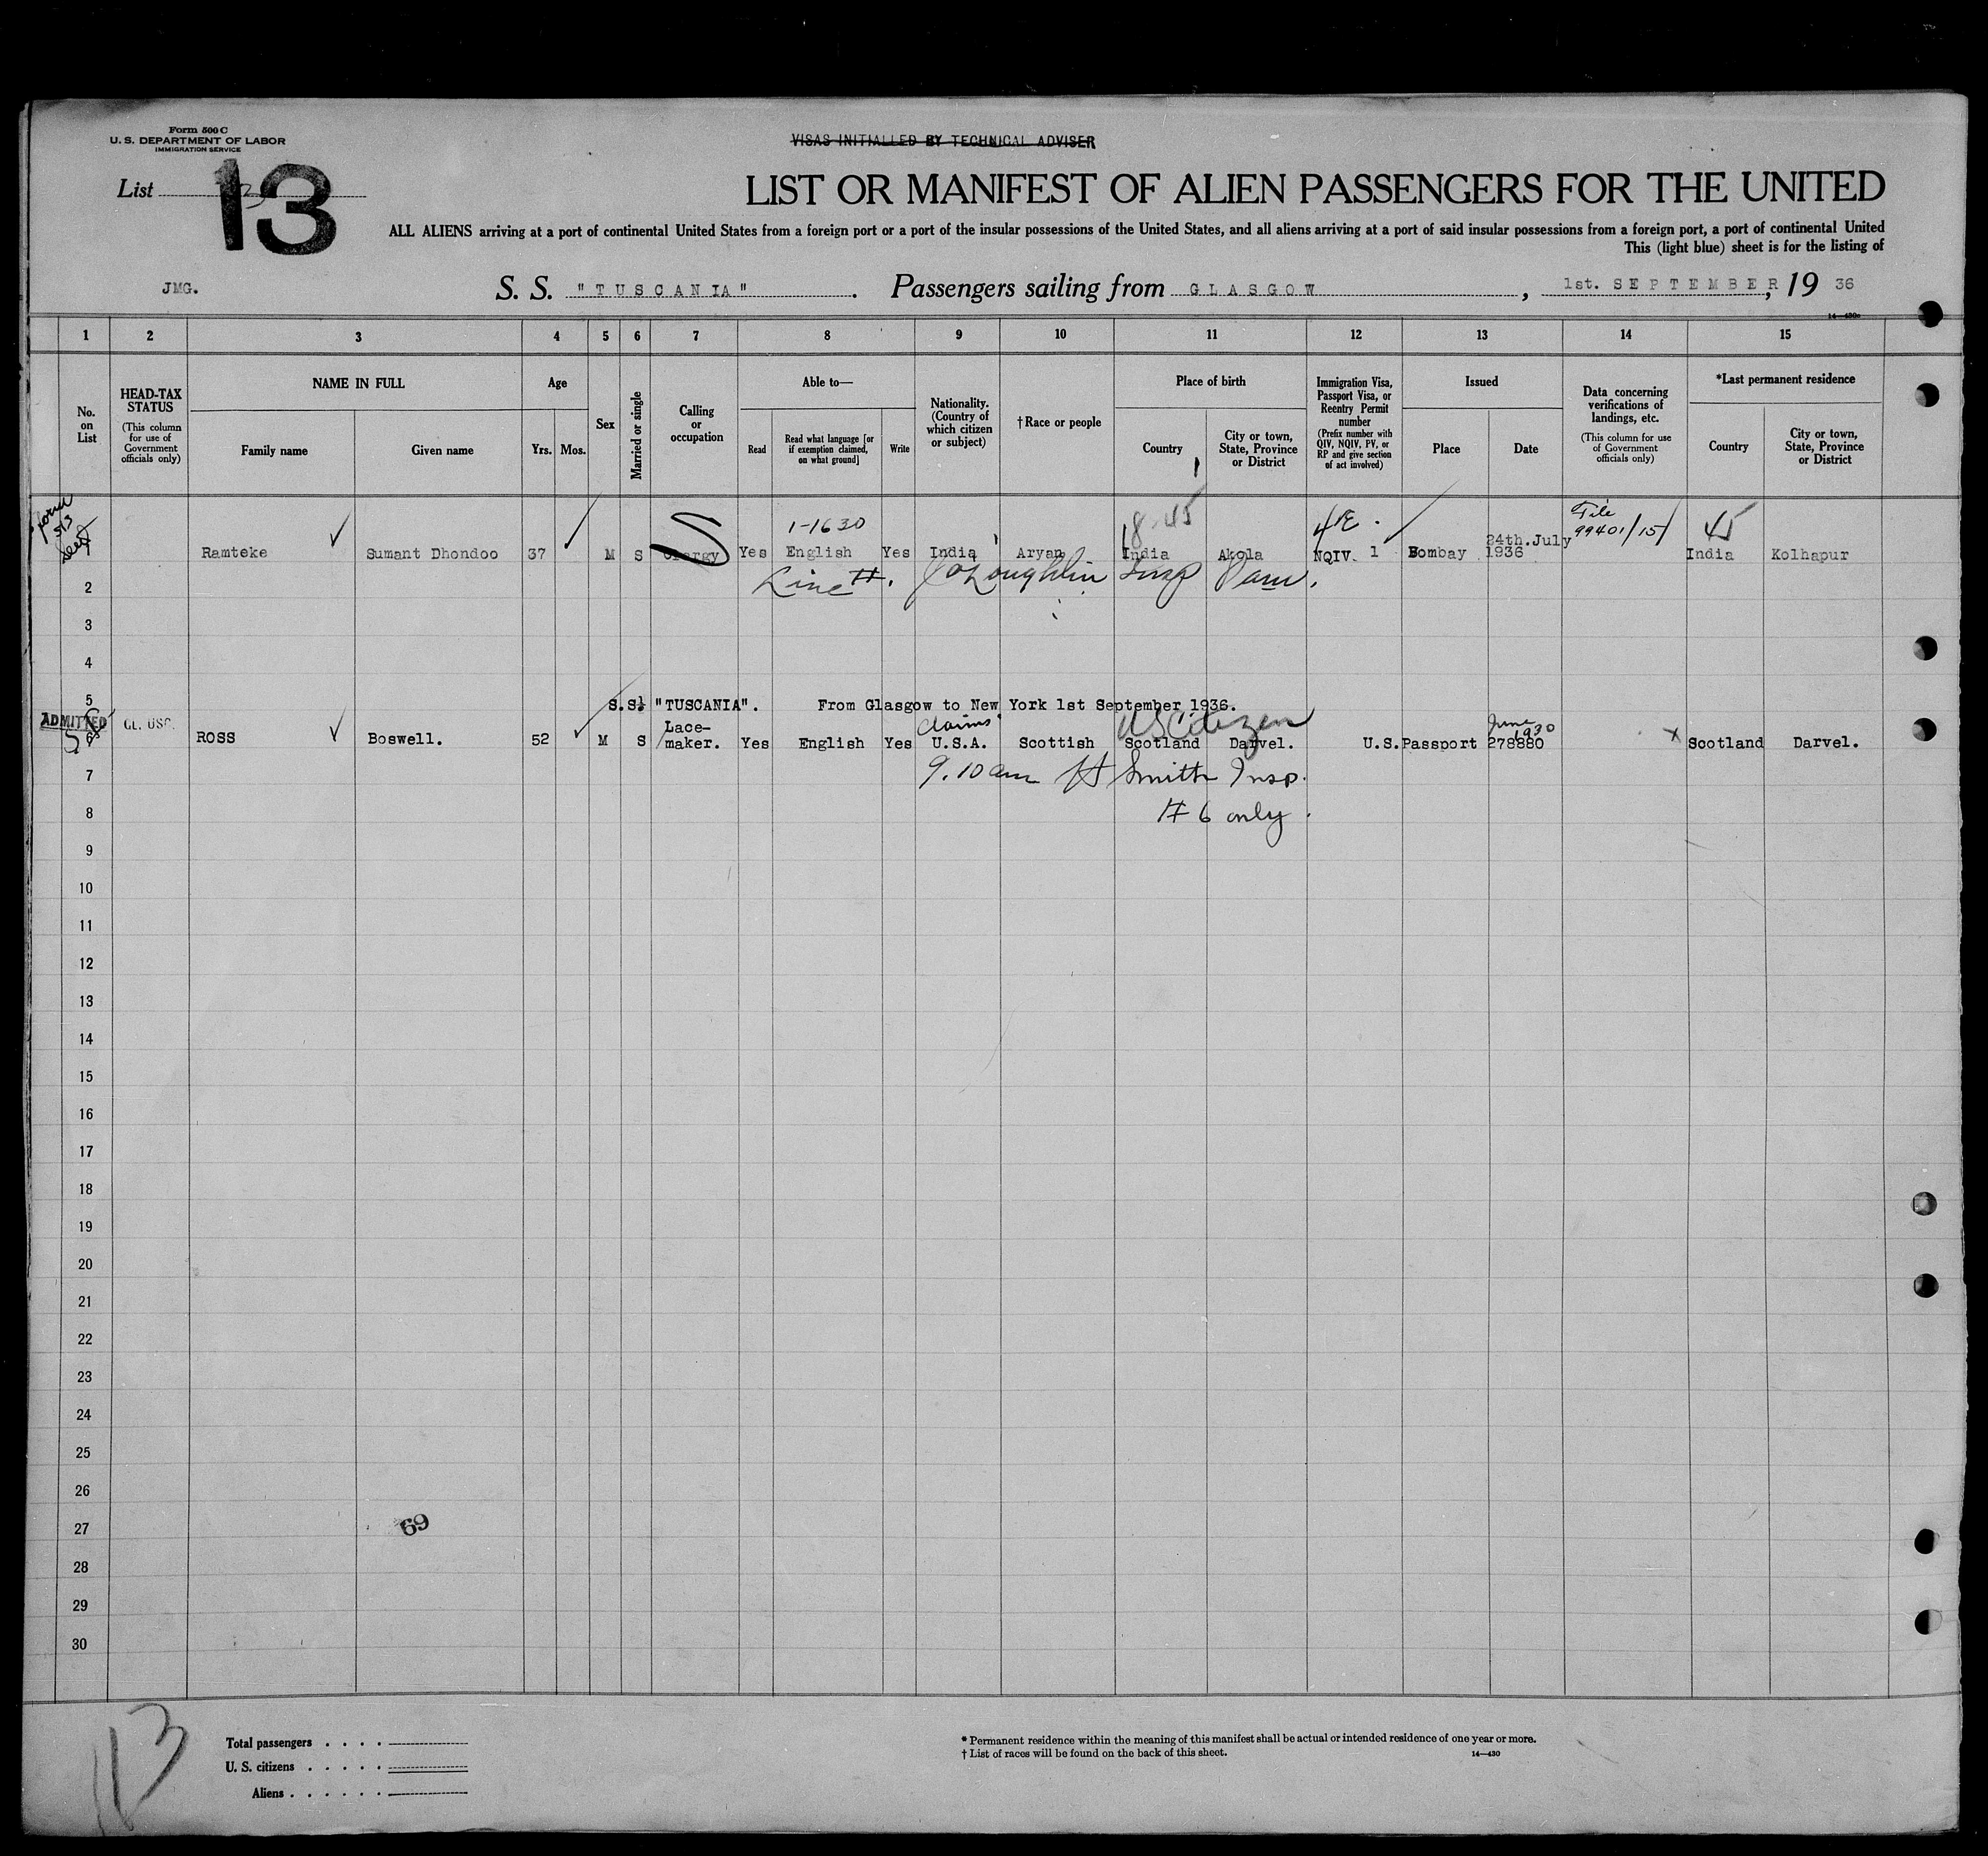 Form 500 C
U. S. DEPARTMENT OF LABOR
IMMIGRATION SERVICE
VISAS INITIALLED BY TECHNICAL ADVISER
List 13
LIST OR MANIFEST OF ALIEN PASSENGERS FOR THE UNITED
ALL ALIENS arriving at a port of continental United States from a foreign port or a port of the insular possessions of the United States, and all aliens arriving at a port of said insular possessions from a foreign port, a port of continental United
This (light blue) sheet is for the listing of
JMG. S. S. "TUSCANIA". Passengers sailing from GLASGOW, 1st. SEPTEMBER, 19 36
14—430a
1 2 3 4 5 6 7 8 9 10 11 12 13 14 15
No. on List
HEAD-TAX STATUS (This column for use of Government officials only)
NAME IN FULL
Family name Given name
Age
Yrs. Mos.
Sex
Married or single
Calling or occupation
Able to—
Read Read what language [or if exemption claimed, on what ground] Write
Nationality. (Country of which citizen or subject)
†Race or people
Place of birth
Country City or town, State, Province or District
Immigration Visa, Passport Visa, or Reentry Permit number (Prefix number with QIV, NQIV, PV, or RP and give section of act involved)
Issued
Place Date
Data concerning verifications of landings, etc. (This column for use of Government officials only)
*Last permanent residence
Country City or town, State, Province or District
Form 513
1-1630 8-45 4E. File 99401/151 45
1 Ramteke Sumant Dhondoo 37 M S Clergy Yes English Yes India Aryan India Akola NQIV. 1 Bombay 24th.July 1936 India Kolhapur
Line #1. J O'Loughlin Insp
2
3
4
5 S.S. "TUSCANIA". From Glasgow to New York 1st September 1936.
ADMITTED CL. USC. claims US Citizen June 1930
6 ROSS Boswell. 52 M S Lace-maker. Yes English Yes U.S.A. Scottish Scotland Darvel. U.S.Passport 278880 x Scotland Darvel.
7 9.10 am H Smith Insp.
8 # 6 only.
9
10
11
12
13
14
15
16
17
18
19
20
21
22
23
24
25
26
27 69
28
29
30
13
Total passengers . . . .
U. S. citizens . . . . .
Aliens . . . . . .
* Permanent residence within the meaning of this manifest shall be actual or intended residence of one year or more.
† List of races will be found on the back of this sheet. 14—430